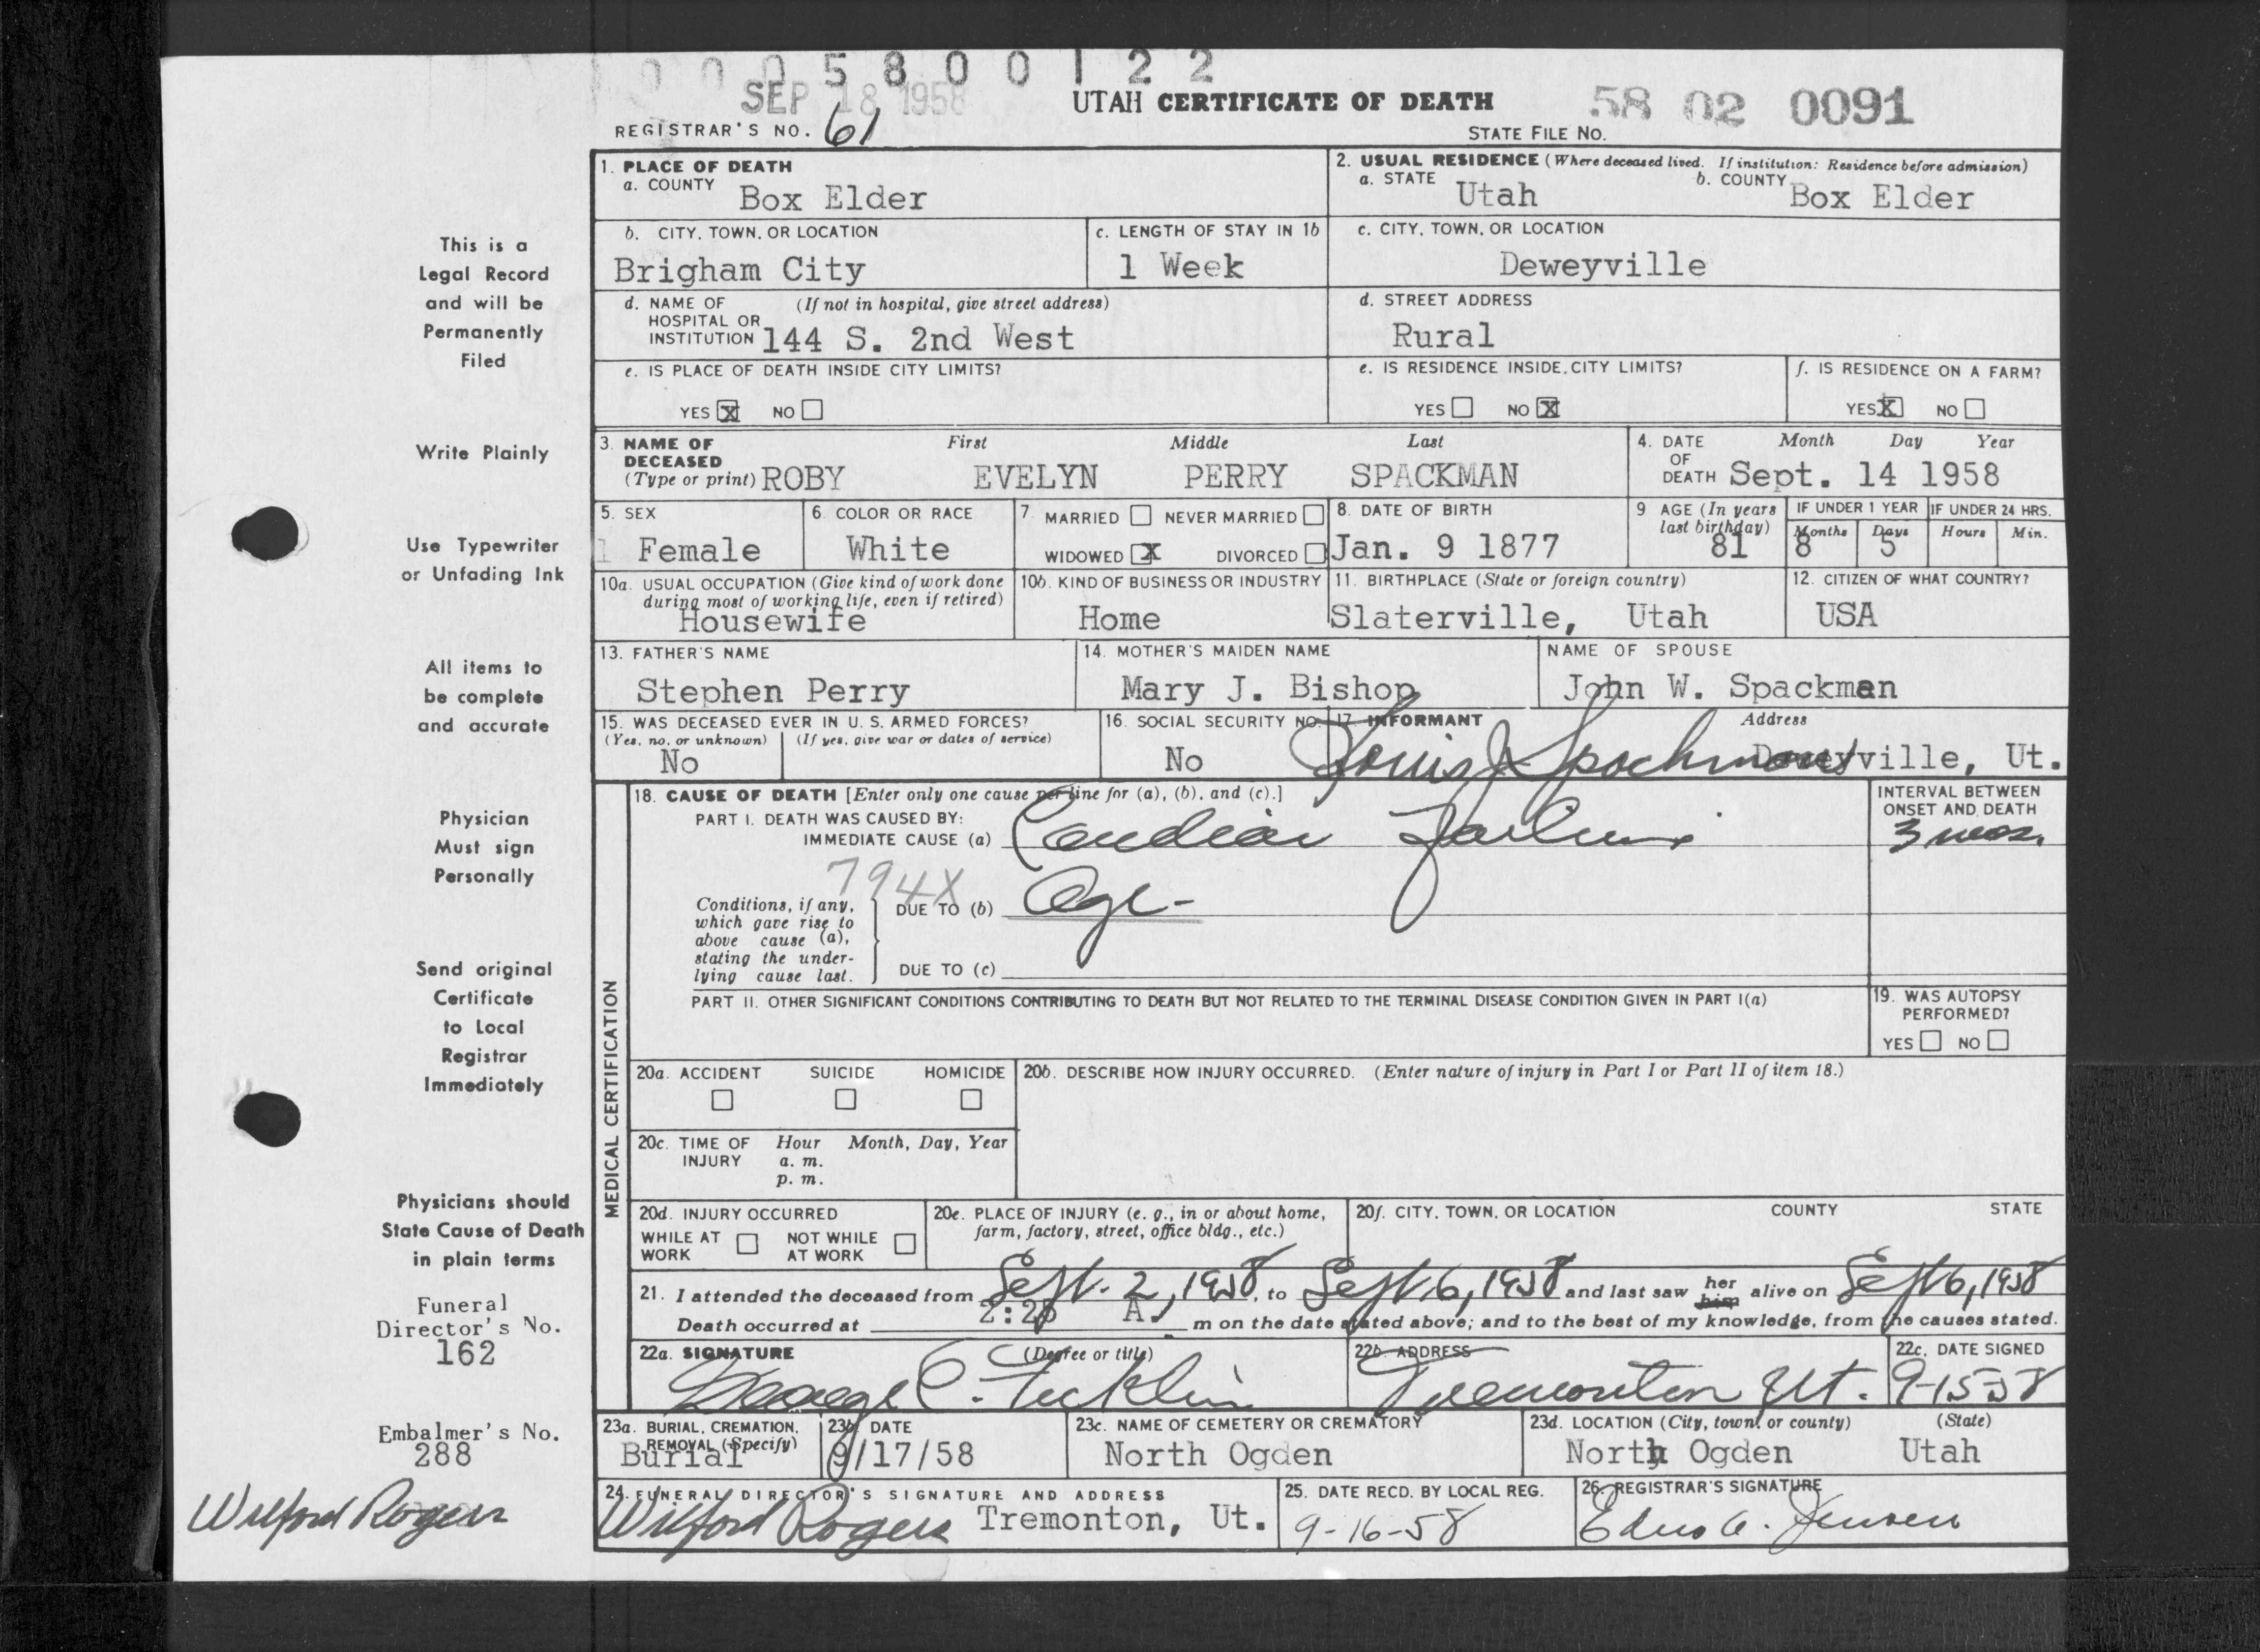 0 0 0 5 8 0 0 1 2 2
SEP 18 1958
UTAH CERTIFICATE OF DEATH
58 02 0091
REGISTRAR'S NO. 61
STATE FILE NO.
This is a
Legal Record
and will be
Permanently
Filed
Write Plainly
Use Typewriter
or Unfading Ink
All items to
be complete
and accurate
Physician
Must sign
Personally
Send original
Certificate
to Local
Registrar
Immediately
Physicians should
State Cause of Death
in plain terms
Funeral
Director's No.
162
Embalmer's No.
288
Wilford Rogers
1. PLACE OF DEATH
a. COUNTY Box Elder
2. USUAL RESIDENCE (Where deceased lived. If institution: Residence before admission)
a. STATE Utah b. COUNTY Box Elder
b. CITY, TOWN, OR LOCATION
Brigham City
c. LENGTH OF STAY IN 1b
1 Week
c. CITY, TOWN, OR LOCATION
Deweyville
d. NAME OF (If not in hospital, give street address)
HOSPITAL OR
INSTITUTION 144 S. 2nd West
d. STREET ADDRESS
Rural
e. IS PLACE OF DEATH INSIDE CITY LIMITS?
YES X NO
e. IS RESIDENCE INSIDE CITY LIMITS?
YES NO X
f. IS RESIDENCE ON A FARM?
YES X NO
3. NAME OF First Middle Last
DECEASED
(Type or print) ROBY EVELYN PERRY SPACKMAN
4. DATE Month Day Year
OF
DEATH Sept. 14 1958
5. SEX
1 Female
6. COLOR OR RACE
White
7. MARRIED NEVER MARRIED
WIDOWED X DIVORCED
8. DATE OF BIRTH
Jan. 9 1877
9 AGE (In years
last birthday)
81
IF UNDER 1 YEAR
Months Days
8 5
IF UNDER 24 HRS.
Hours Min.
10a. USUAL OCCUPATION (Give kind of work done
during most of working life, even if retired)
Housewife
10b. KIND OF BUSINESS OR INDUSTRY
Home
11. BIRTHPLACE (State or foreign country)
Slaterville, Utah
12. CITIZEN OF WHAT COUNTRY?
USA
13. FATHER'S NAME
Stephen Perry
14. MOTHER'S MAIDEN NAME
Mary J. Bishop
NAME OF SPOUSE
John W. Spackman
15. WAS DECEASED EVER IN U. S. ARMED FORCES?
(Yes, no, or unknown) (If yes, give war or dates of service)
No
16. SOCIAL SECURITY NO.
No
17. INFORMANT Address
Louis J. Spackman Deweyville, Ut.
MEDICAL CERTIFICATION
18. CAUSE OF DEATH [Enter only one cause per line for (a), (b), and (c).]
PART I. DEATH WAS CAUSED BY:
IMMEDIATE CAUSE (a) Cardiac Failure
INTERVAL BETWEEN
ONSET AND DEATH
3 mos.
794X
Conditions, if any,
which gave rise to
above cause (a),
stating the under-
lying cause last.
DUE TO (b) Age -
DUE TO (c)
PART II. OTHER SIGNIFICANT CONDITIONS CONTRIBUTING TO DEATH BUT NOT RELATED TO THE TERMINAL DISEASE CONDITION GIVEN IN PART I(a)
19. WAS AUTOPSY
PERFORMED?
YES NO
20a. ACCIDENT SUICIDE HOMICIDE
20b. DESCRIBE HOW INJURY OCCURRED. (Enter nature of injury in Part I or Part II of item 18.)
20c. TIME OF Hour Month, Day, Year
INJURY a. m.
p. m.
20d. INJURY OCCURRED
WHILE AT WORK NOT WHILE AT WORK
20e. PLACE OF INJURY (e. g., in or about home,
farm, factory, street, office bldg., etc.)
20f. CITY, TOWN, OR LOCATION COUNTY STATE
21. I attended the deceased from Sept. 2, 1958, to Sept 6, 1958 and last saw her him alive on Sept 6, 1958
Death occurred at 2:20 A. m on the date stated above; and to the best of my knowledge, from the causes stated.
22a. SIGNATURE (Degree or title)
George C.
22b. ADDRESS
Tremonton Ut.
22c. DATE SIGNED
9-15-58
23a. BURIAL, CREMATION,
REMOVAL (Specify)
Burial
23b. DATE
9/17/58
23c. NAME OF CEMETERY OR CREMATORY
North Ogden
23d. LOCATION (City, town, or county) (State)
North Ogden Utah
24. FUNERAL DIRECTOR'S SIGNATURE AND ADDRESS
Wilford Rogers Tremonton, Ut.
25. DATE RECD. BY LOCAL REG.
9-16-58
26. REGISTRAR'S SIGNATURE
Jensen